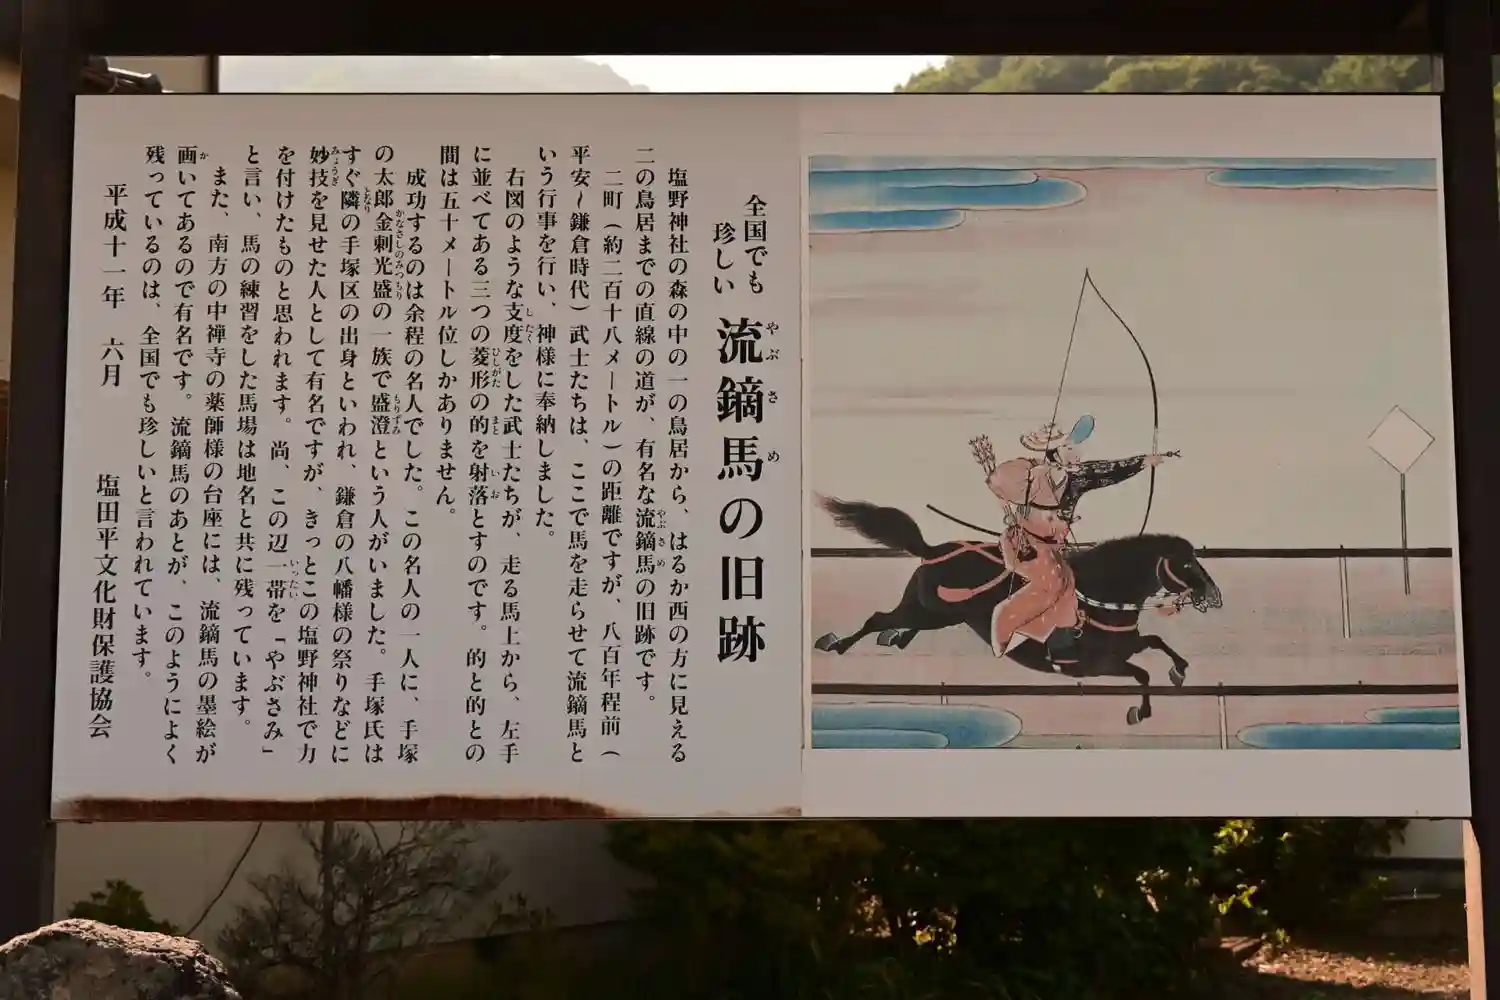 全国でも
珍しい
流鏑馬の旧跡
塩野神社の森の中の一の鳥居から、はるか西の方に見える
二の鳥居までの直線の道が、有名な流鏑馬の旧跡です。
二町（約二百十八メートル）の距離ですが、八百年程前（
平安〜鎌倉時代）武士たちは、ここで馬を走らせて流鏑馬と
いう行事を行い、神様に奉納しました。
右図のような支度をした武士たちが、走る馬上から、左手
に並べてある三つの菱形の的を射落とすのです。的と的との
間は五十メートル位しかありません。
成功するのは余程の名人でした。この名人の一人に、手塚
の太郎金刺光盛の一族で盛澄という人がいました。手塚氏は
すぐ隣の手塚区の出身といわれ、鎌倉の八幡様の祭りなどに
妙技を見せた人として有名ですが、きっとこの塩野神社で力
を付けたものと思われます。尚、この辺一帯を「やぶさみ」
と言い、馬の練習をした馬場は地名と共に残っています。
また、南方の中禅寺の薬師様の台座には、流鏑馬の墨絵が
画いてあるので有名です。流鏑馬のあとが、このようによく
残っているのは、全国でも珍しいと言われています。
平成十一年　六月　塩田平文化財保護協会